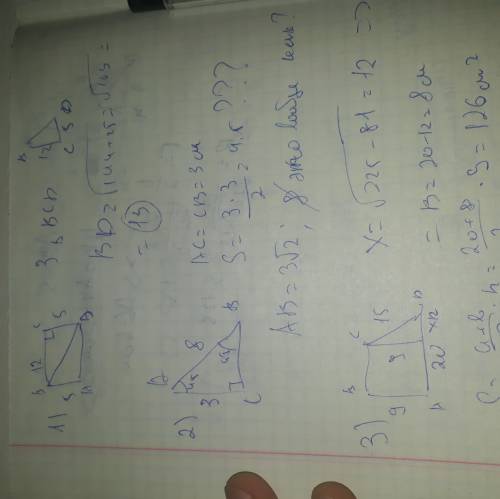 1)
B 12 C
5
A D
3 в BCD
B
12
C 5 D
BD = √144+25 = √169 =
= 13
2)
A
45
8
3
45
C B
AC = CB = 3 см
S = 3 · 3 / 2 = 4.5 ???
AB = 3√2 ; 8 это вообще
3)
B C
9 9 15
A 20 x12 D
X = √225 - 81 = 12 =>
= B = 20 - 12 = 8 см
S = a+b / 2 · h = 20+8 / 2 · 9 = 126 см²